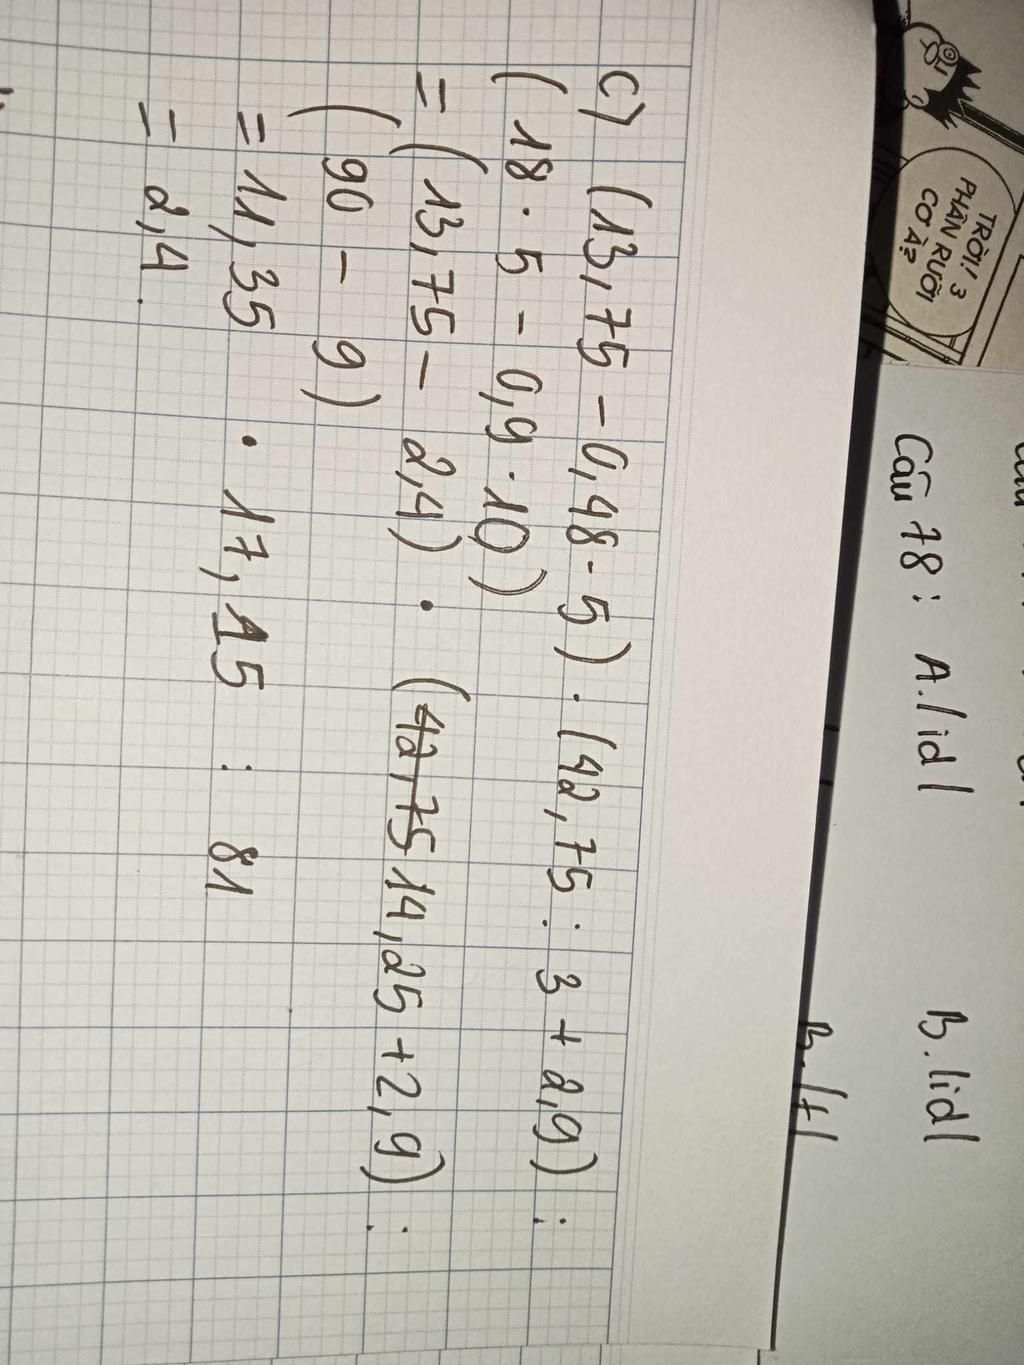 TRỜI! 3
PHÂN RƯỠI
CƠ À?
Câu 78: A./id/
B./id/
B./t/
c) (13,75 - 0,48 · 5) · (42,75 : 3 + 2,9) :
(18 · 5 - 0,9 · 10)
= (13,75 - 2,4) · (42,75 14,25 + 2,9) :
(90 - 9)
= 11,35 · 17,15 : 81
= 2,4.